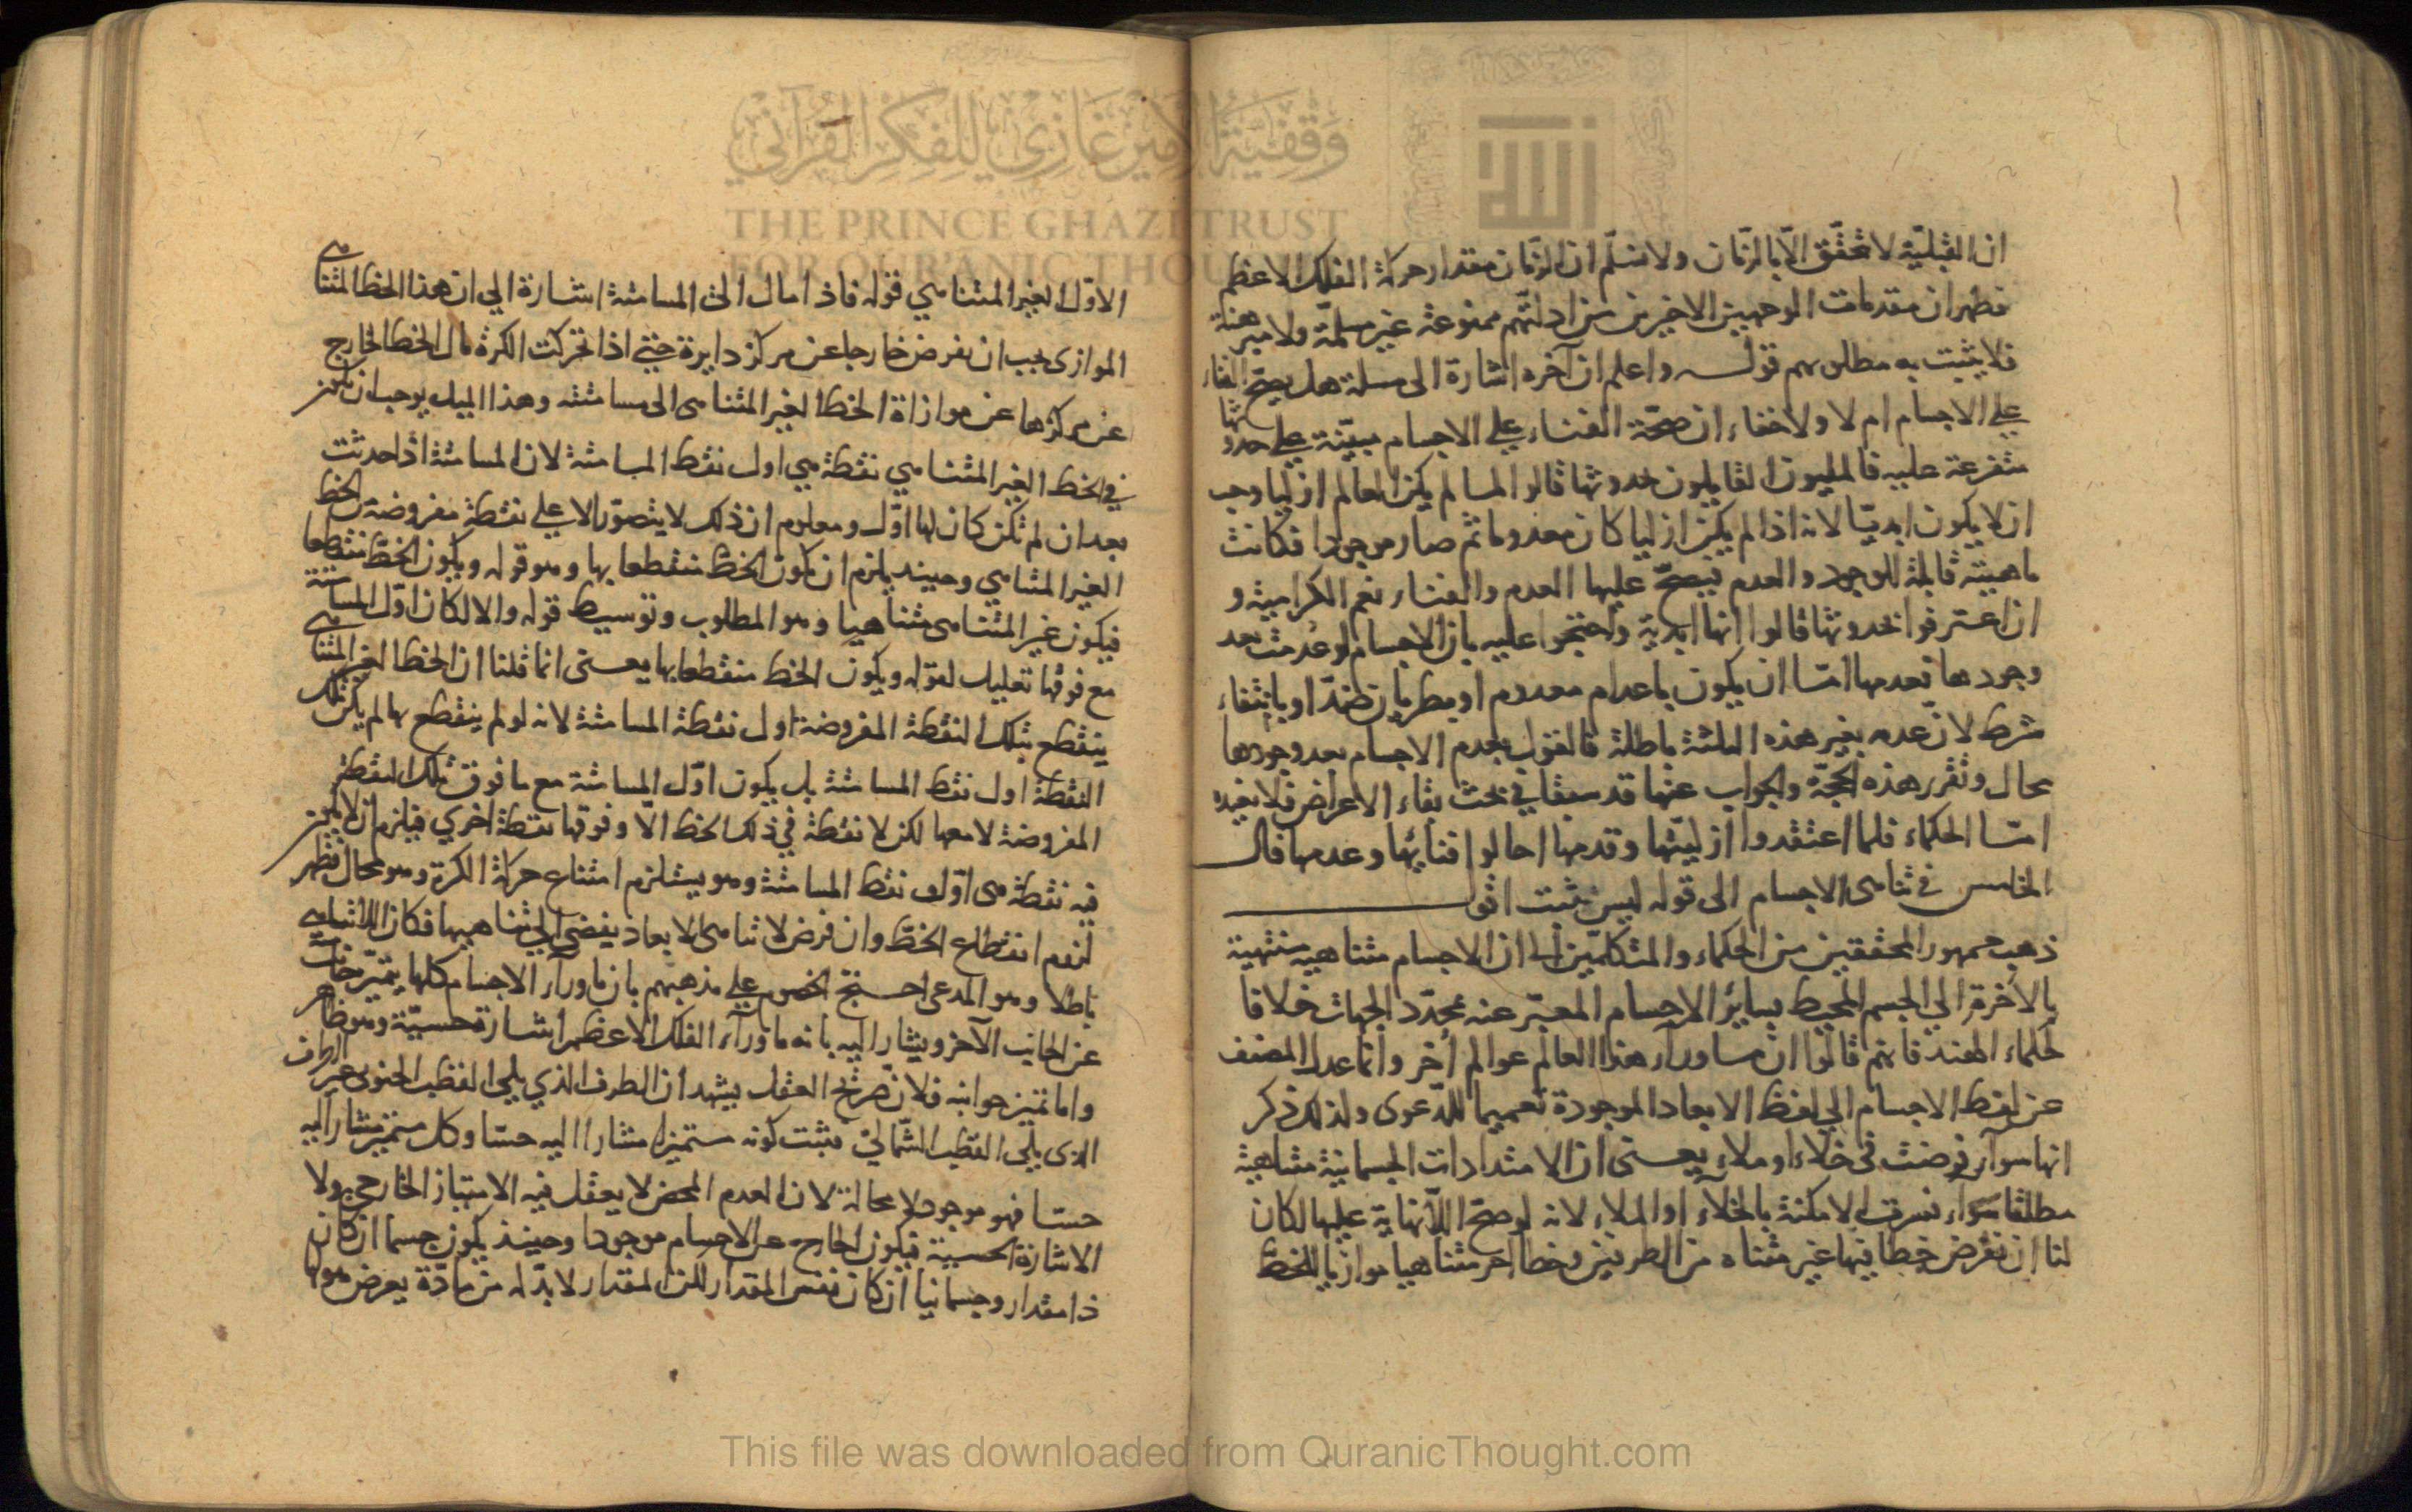 ان القبليّة لا تحقّق الّا بالزّمان ولا نسلّم ان الزّمان مقدار حركة الفلك الاعظم
فظهر ان مقدمات الوجهين الاخيرين من ادلّتهم ممنوعة غير مسلمّة ولا مبرهنة
فلا يثبت به مطلوبهم قوله واعلم ان آخره اشارة الى مسلة هل يصحّ الفناء
على الاجسام ام لا ولا خفاء ان صحّة الفناء على الاجسام مبيّنة على حدوثها
متفرعة عليه فالمليون القايلون بحدوثها قالوا لما لم يكن العالم ازليا وجب
ان لا يكون ابديّا لانه اذا لم يكن ازليا كان معدوما ثم صار موجودا فكانت
ماهيته قابلة للوجود والعدم فيصحّ عليها العدم والفناء نعم الكرامية و
ان اعترفوا بحدوثها قالوا انها ابدية واحتجوا عليه بان الاجسام لو عدمت بعد
وجودها فعدمها امّا ان يكون باعدام معدوم او بطريان ضدّ او بانتفاء
شرط لان عدمه بغير هذه الثلثة باطلة فالقول بعدم الاجسام بعد وجودها
محال وتقرر هذه الحجّة والجواب عنها قد سبقا في بحث بقاء الاعراض فلا نعيده
امّا الحكماء فلما اعتقدوا ازليتها وقدمها احالوا فنائها وعدمها قال
الخامس في تناهى الاجسام الى قوله ليس يثبت اقول
ذهب جمهور المحققين من الحكماء والمتكلمين الى ان الاجسام متناهيه منتهية
بالأخرة الي الجسم المحيط بساير الاجسام المعبّر عنه بمحدّد الجهات خلافا
لحكماء الهند فانهم قالوا ان ماوراء هذا العالم عوالم أخر وانما عدل المصنف
عن لفظ الاجسام الي لفظ الابعاد الموجودة تعميما للدّعوى ولذلك ذكر
انها سواء فرضت في خلاء او ملاء يعنى ان الامتدادات الجسمانية متناهية
مطلقا سواء فسرت الامكنة بالخلاء او الملاء لانه لو صحّ اللّانهاية عليها لكان
لنا ان نفرض خطا فيها غير متناه من الطرفين وخطا اخر متناهيا موازيا للخطّ
الاوّل الغير المتناهي قوله فاذا مال الى المسامتة اشارة الي ان هذا الخط المتناهى
الموازى يجب ان نفرض خارجا عن مركز دايرة حتى اذا تحركت الكرة مال الخط الخارج
عن مركزها عن موازاة الخط الغير المتناهى الى مسامتته وهذا الميل يوجب ان يكون
في الخط الغير المتناهي نقطة هي اول نقط المسامتة لان المسامتة اذا حدثت
بعد ان لم تكن كان لها اوّل ومعلوم ان ذلك لا يتصوّر الا على نقطة مفروضة من الخط
الغير المتناهي وحينيذ يلزم ان يكون الخط منقطعا بها وهو قوله ويكون الخطّ منقطعا
فيكون غير المتناهى متناهيا وهو المطلوب وتوسيط قوله والا لكان اوّل المسامتة
مع فوقها تعليل لقوله ويكون الخط منقطعا بها يعنى انما قلنا ان الخط الغير المتناهى
ينقطع بتلك النقطة المفروضة اول نقطة المسامتة لانه لو لم ينقطع بها لم يكن تلك
النقطة اول نقط المسامتة بل يكون اوّل المسامتة مع ما فوق تلك النقطة
المفروضة لا معها لكن لا نقطة في ذلك الخط الّا وفوقها نقطة اخري فيلزم ان لا يكون
فيه نقطة هى اوّل نقط المسامتة وهو يستلزم امتناع حركة الكرة وهو محال فظهر
لزوم انقطاع الخطّ وان فرض لا تناهى الابعاد يفضى الى تناهيها فكان اللاتناهي
باطلا وهو المدعى احتج الخصوم على مذهبهم بان ماوراء الاجسام كلها يتميز جانب
عن الجانب الآخر ويشار اليه بانه ماوراء الفلك الاعظم اشارة حسيّة وهو ظاهر
واما تميز جوانبه فلان صريح العقل يشهد ان الطرف الذي يلى القطب الجنوبى غير الطرف
الذى يلى القطب الشّماليّ فثبت كونه متميزا مشارا اليه حسّا وكل متميز مشار اليه
حسّا فهو موجود لا محالة لان العدم المحض لا يعقل فيه الامتياز الخارجي ولا
الاشارة الحسية فيكون الخارج عن الاجسام موجودا وحينيذ يكون جسما ان كان
ذا مقدار وجسمانيا ان كان نفس المقدار لان المقدار لابدّ له من مادّة يعرض هو لها
وقفية الأمير غازي للفكر القرآني
THE PRINCE GHAZI TRUST
FOR QUR'ANIC THOUGHT
This file was downloaded from QuranicThought.com